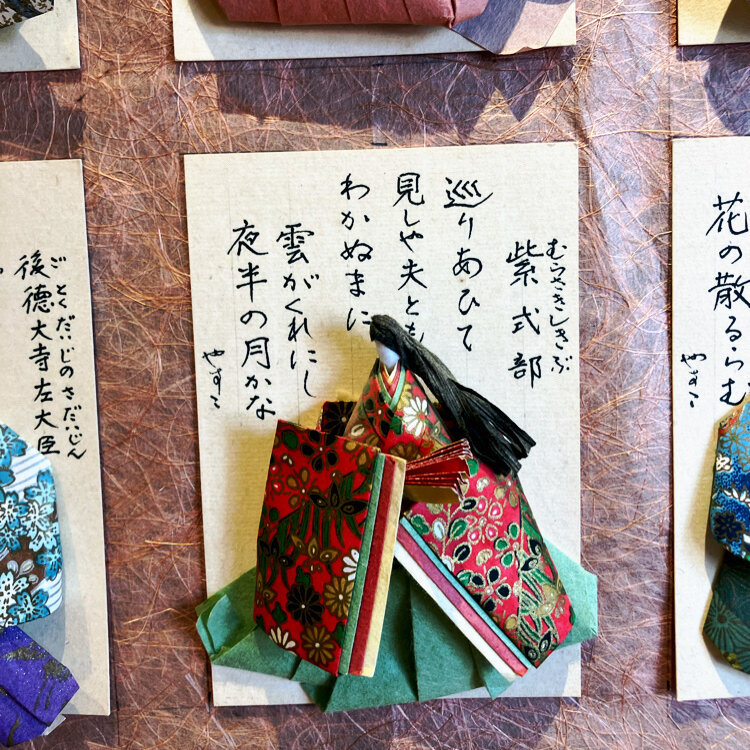 花の散るらむ
やすこ
むらさきしきぶ
紫式部
巡りあひて
見しや夫とも
わかぬまに
雲がくれにし
夜半の月かな
やすこ
ごとくだいじのさだいじん
後徳大寺左大臣